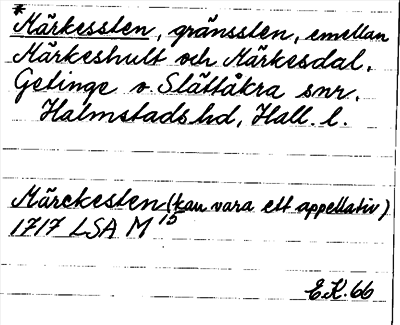 *Märkessten, gränssten, emellan
Märkeshult och Märkesdal,
Getinge o. Slättåkra snr.
Halmstads hd, Hall. l.
Märckesten (kan vara ett appellativ)
1717 LSA M 15
E.K. 66